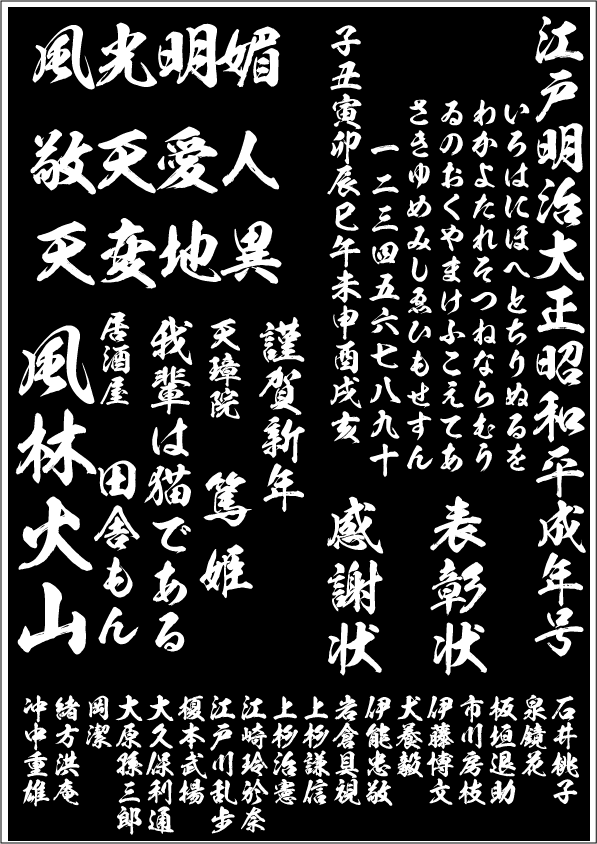 江戸明治大正昭和平成年号
いろはにほへとちりぬるを
わかよたれそつねならむう
ゐのおくやまけふこえてあ
さきゆめみしゑひもせすん
一二三四五六七八九十
子丑寅卯辰巳午未申酉戌亥
表彰状
感謝状
風光明媚
敬天愛人
天変地異
謹賀新年
天璋院
篤姫
我輩は猫である
居酒屋
田舎もん
風林火山
石井桃子
泉鏡花
板垣退助
市川房枝
伊藤博文
犬養毅
伊能忠敬
岩倉具視
上杉謙信
上杉治憲
江崎玲於奈
江戸川乱歩
榎本武揚
大久保利通
大原孫三郎
岡潔
緒方洪庵
沖中重雄